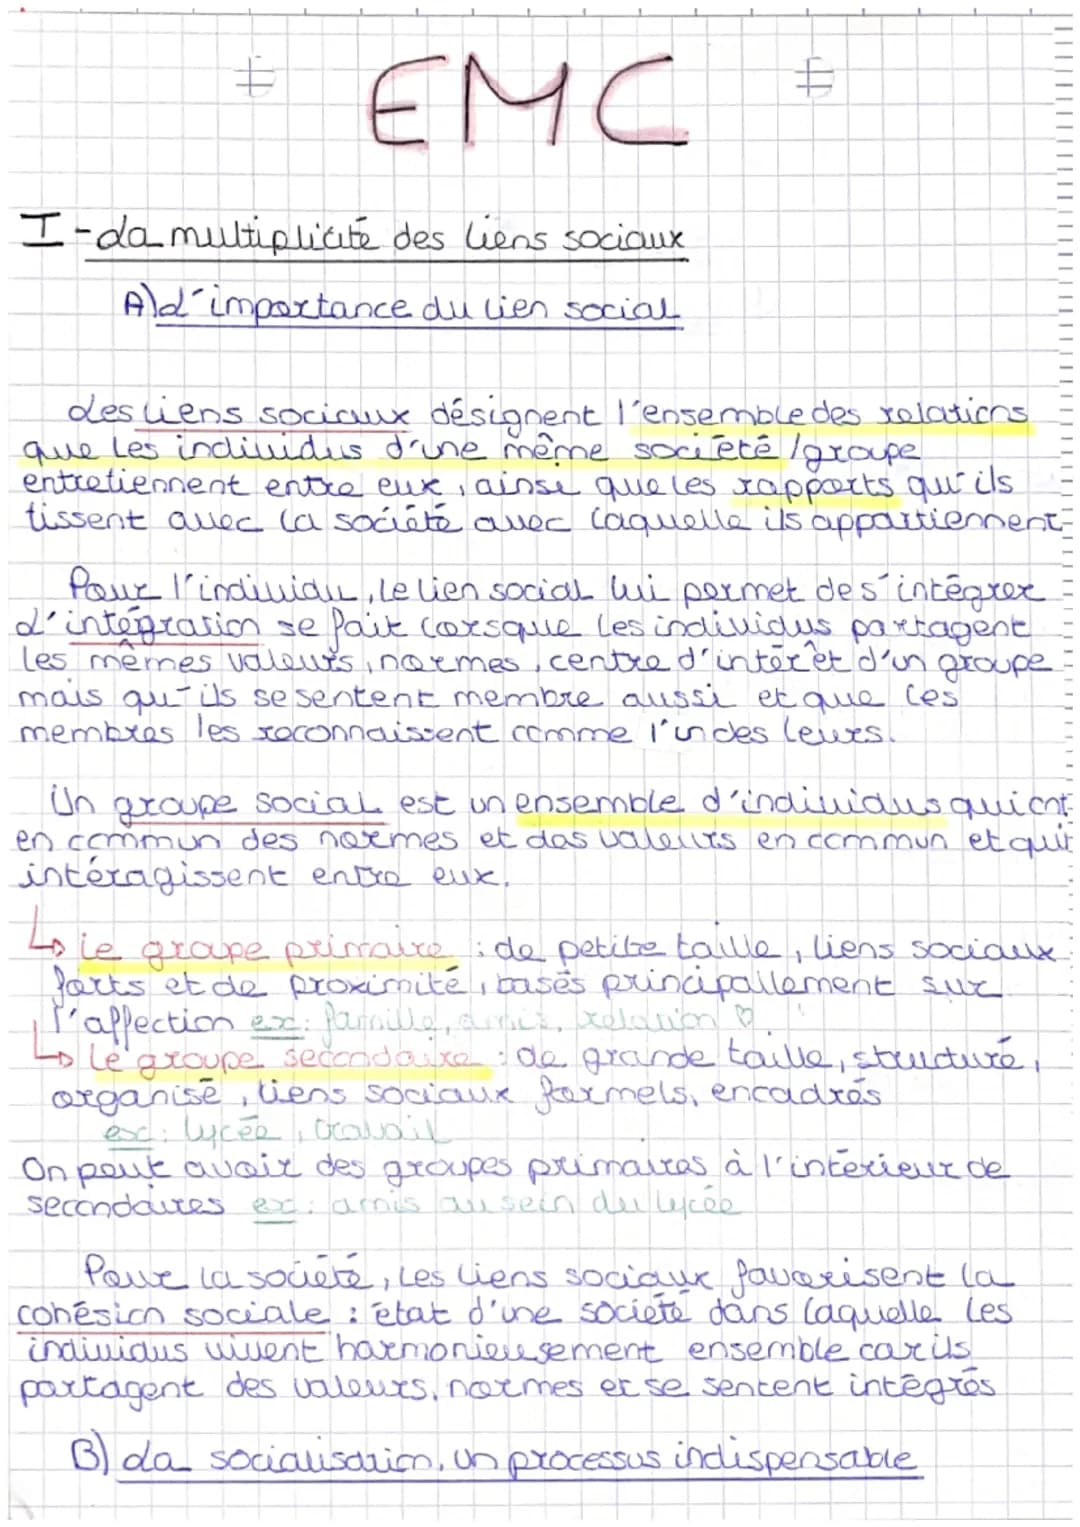 EMC
I - La multiplicité des liens sociaux
A) L'importance du lien social
Les liens sociaux désignent l'ensemble des relations
que les individus d'une même société / groupe
entretiennent entre eux, ainsi que les rapports qu'ils
tissent avec la société avec laquelle ils appartiennent
Pour l'individu, le lien social lui permet de s'intégrer
L'intégration se fait lorsque les individus partagent
les mêmes valeurs, normes, centre d'intérêt d'un groupe
mais qu'ils se sentent membre aussi et que les
membres les reconnaissent comme l'un des leurs.
Un groupe social est un ensemble d'individus qui ont
en commun des normes et des valeurs en commun et qui
intéragissent entre eux.
↳ le groupe primaire : de petite taille, liens sociaux
forts et de proximité, basés principallement sur
l'affection ex: famille, amis, relation ♡
↳ le groupe secondaire : de grande taille, structuré,
organisé, liens sociaux formels, encadrés
ex: lycée, travail
On peut avoir des groupes primaires à l'intérieur de
secondaires ex: amis au sein du lycée
Pour la société, les liens sociaux favorisent la
cohésion sociale : état d'une société dans laquelle les
individus vivent harmonieusement ensemble car ils
partagent des valeurs, normes et se sentent intégrés
B) La socialisation, un processus indispensable